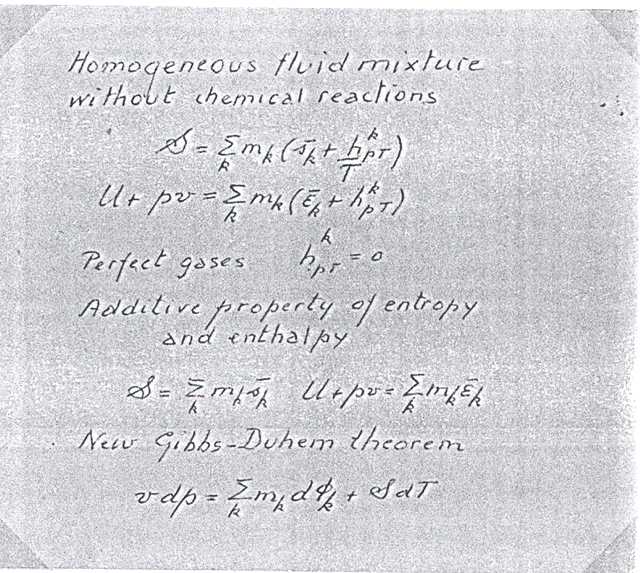 Homogeneous fluid mixture
without chemical reactions
𝒮 = Σ_k m_k (s̄_k + h^k_{pT}/T)
U + pv = Σ_k m_k (ε̄_k + h^k_{pT})
Perfect gases h^k_{pT} = 0
Additive property of entropy
and enthalpy
𝒮 = Σ_k m_k s̄_k U + pv = Σ_k m_k ε̄_k
New Gibbs-Duhem theorem
vdp = Σ_k m_k dϕ_k + 𝒮dT